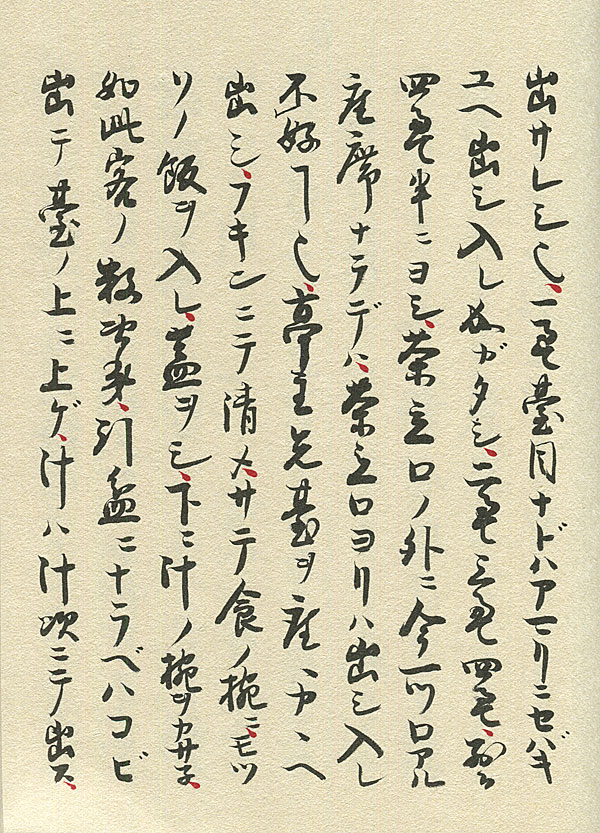 出サレシ也、一畳臺目ナドハアマリニセバキ
ユヘ出シ入レ成ガタシ、二畳三畳四畳、
四畳半ニヨシ、茶立口ノ外ニ今一ツ口アル
座席ナラデハ、茶立口ヨリハ出シ入レ
不好ヿ也、亭主先臺ヲ座ヘカヽヘ
出シ、フキンニテ清メ、サテ食ノ椀ニ、モツ
ソノ飯ヲ入レ、蓋ヲシ、下ニ汁ノ椀ヲカサネ、
如此客ノ数次第、引盆ニナラベハコビ
出テ臺ノ上ニ上ゲ、汁ハ汁次ニテ出ス、